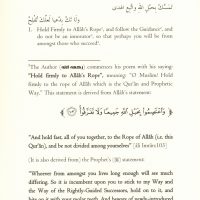 تَمَسَّكْ بِحَبْلِ اللهِ وَاتَّبِعِ الهُدَى
وَلَا تَكُ بِدْعِيًّا لَعَلَّكَ تُفْلِحُ
1. Hold Firmly to Allāh's Rope, and follow the Guidance, and
do not be an innovator, so that perhaps you will be from
amongst those who succeed!
"The Author commences his poem with his saying:
"Hold firmly to Allāh's Rope", meaning: "O Muslim! Hold
firmly to the rope of Allāh which is the Qur'ān and Prophetic
Way." This statement is derived from Allāh's statement:
﴿وَاعْتَصِمُوا بِحَبْلِ اللَّهِ جَمِيعًا وَلَا تَفَرَّقُوا﴾
"And hold fast, all of you together, to the Rope of Allāh (i.e. this
Qur'ān), and be not divided among yourselves"
(It is also derived from) the Prophet's ﷺ statement:
"Whoever from amongst you lives long enough will see much
differing. So it is incumbent upon you to stick to my Way and
the Way of the Rightly-Guided Successors, hold on to it, and
bite on it with your molar teeth. And beware of newly-introduced